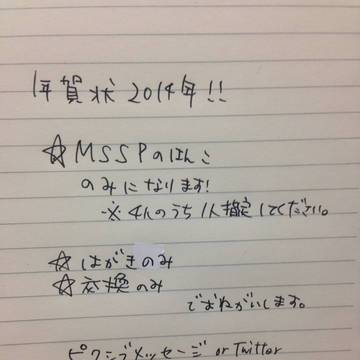 年賀状 2014年!!
☆MSSPのはんこ
のみになります!
※4人のうち1人指定してください。
☆はがきのみ
☆交換のみ
でおねがいします。
ピクシブメッセージ or Twitter